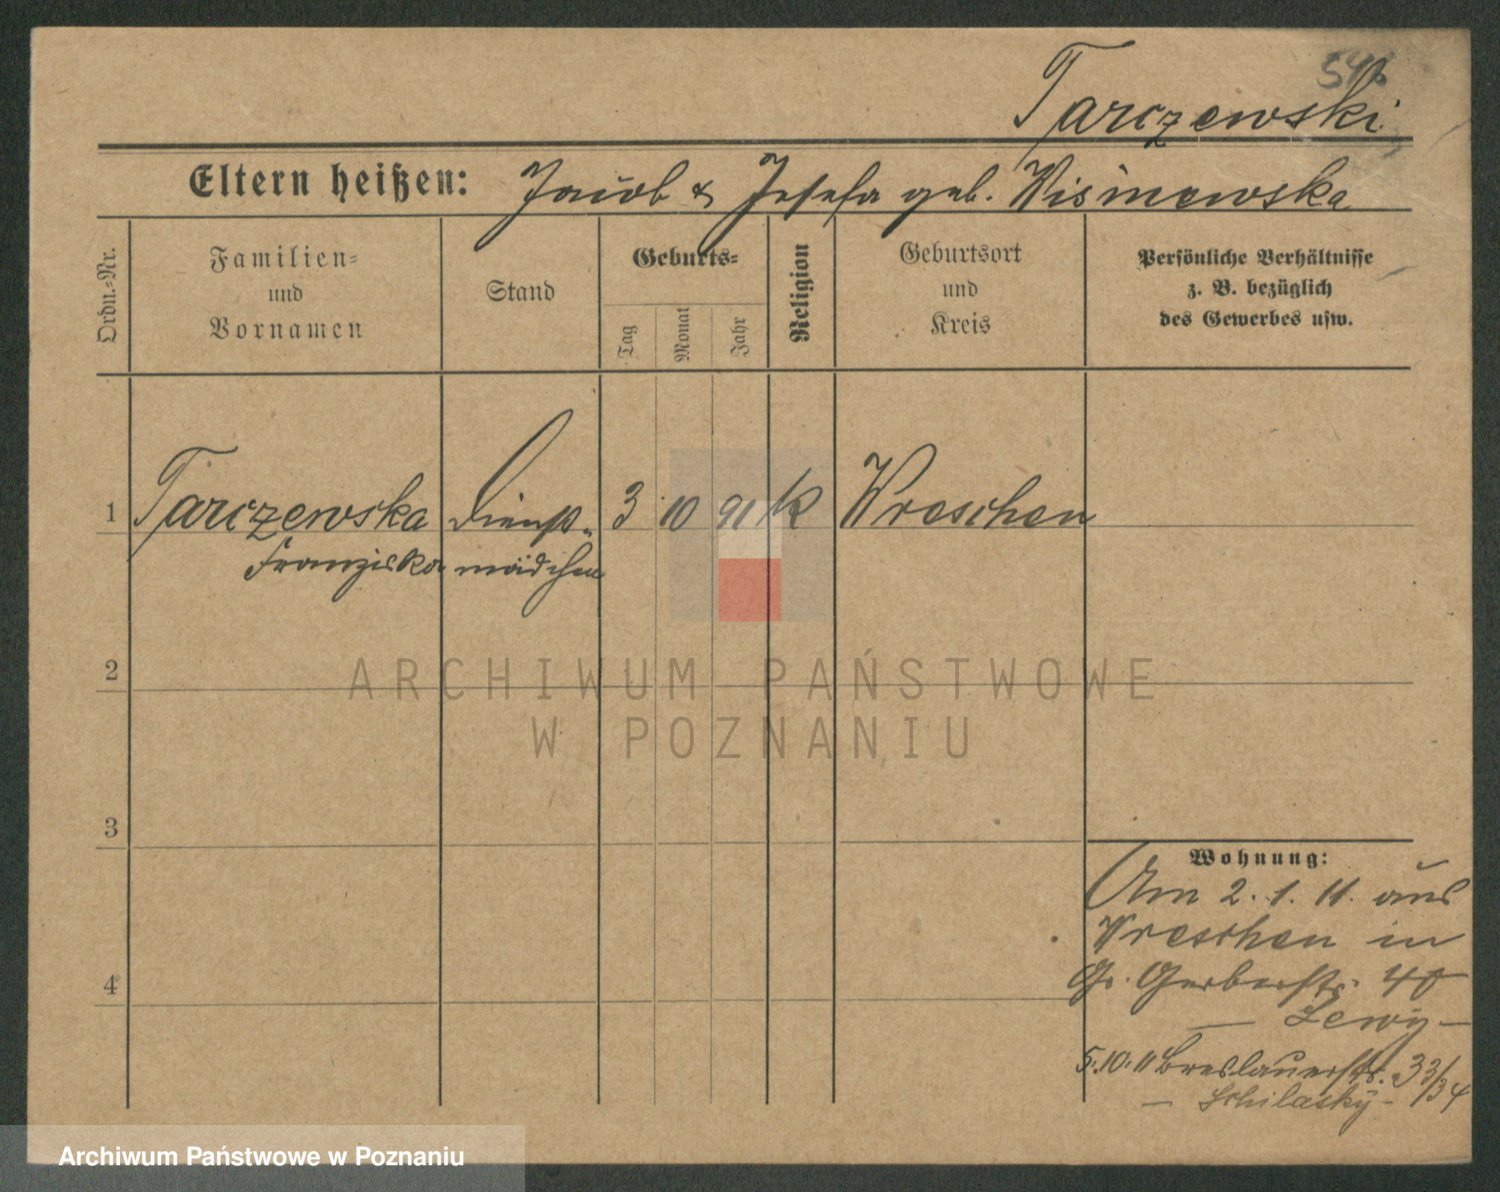 Tarczewski
Eltern heißen: Jacob & Josefa geb. Wisniewska
Ordn.-Nr.
Familien-
und
Vornamen
Stand
Geburts-
Tag
Monat
Jahr
Religion
Geburtsort
und
Kreis
Persönliche Verhältnisse
z. B. bezüglich
des Gewerbes usw.
1 Tarczewska Dienst- 3 10 91 K Wreschen
Franziska mädchen
2
ARCHIWUM PAŃSTWOWE
W POZNANIU
3
Wohnung:
Am 2. 1. 11. aus
Wreschen in
4
Gr. Gerberstr. 40
— Lewy —
5.10.11 Breslauerstr. 33/34
— Schilasky -
Archiwum Państwowe w Poznaniu